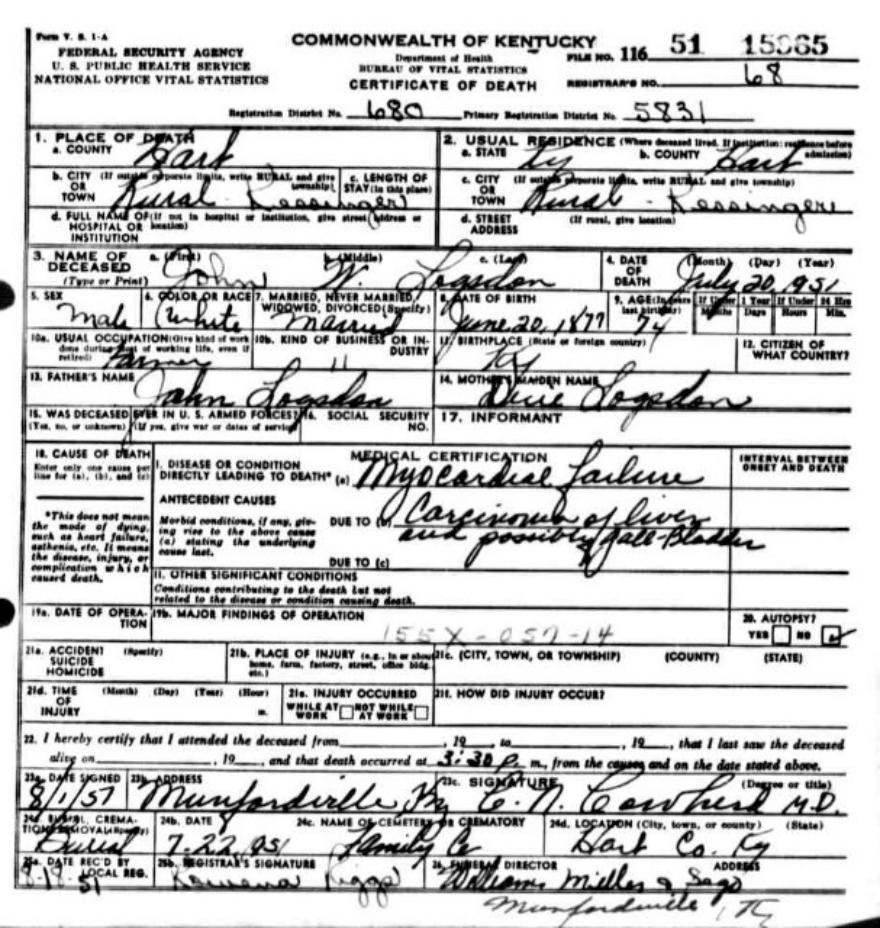 Form V. S. 1-A
FEDERAL SECURITY AGENCY
U. S. PUBLIC HEALTH SERVICE
NATIONAL OFFICE VITAL STATISTICS
COMMONWEALTH OF KENTUCKY
Department of Health
BUREAU OF VITAL STATISTICS
CERTIFICATE OF DEATH
FILE NO. 116 51 15965
REGISTRAR'S NO. 68
Registration District No. 680 Primary Registration District No. 5831
1. PLACE OF DEATH
a. COUNTY Hart
2. USUAL RESIDENCE (Where deceased lived. If institution: residence before admission)
a. STATE Ky b. COUNTY Hart
b. CITY OR TOWN (If outside corporate limits, write RURAL and give township) Rural Kessinger
c. LENGTH OF STAY (in this place)
c. CITY OR TOWN (If outside corporate limits, write RURAL and give township) Rural - Kessinger
d. FULL NAME OF HOSPITAL OR INSTITUTION (If not in hospital or institution, give street address or location)
d. STREET ADDRESS (If rural, give location)
3. NAME OF DECEASED (Type or Print) a. (First) John b. (Middle) W. c. (Last) Logsdon
4. DATE OF DEATH (Month) (Day) (Year) July 20, 1951
5. SEX Male
6. COLOR OR RACE White
7. MARRIED, NEVER MARRIED, WIDOWED, DIVORCED (Specify) Married
8. DATE OF BIRTH June 20, 1877
9. AGE (In years last birthday) 74 If Under 1 Year Months Days If Under 24 Hrs Hours Min.
10a. USUAL OCCUPATION (Give kind of work done during most of working life, even if retired) Farmer
10b. KIND OF BUSINESS OR INDUSTRY "
11. BIRTHPLACE (State or foreign country) Ky
12. CITIZEN OF WHAT COUNTRY?
13. FATHER'S NAME John Logsdon
14. MOTHER'S MAIDEN NAME Logsdon
15. WAS DECEASED EVER IN U. S. ARMED FORCES? (Yes, no, or unknown) (If yes, give war or dates of service)
16. SOCIAL SECURITY NO.
17. INFORMANT
18. CAUSE OF DEATH
Enter only one cause per line for (a), (b), and (c)
*This does not mean the mode of dying, such as heart failure, asthenia, etc. It means the disease, injury, or complication which caused death.
MEDICAL CERTIFICATION
INTERVAL BETWEEN ONSET AND DEATH
I. DISEASE OR CONDITION DIRECTLY LEADING TO DEATH* (a) Myocardial failure
ANTECEDENT CAUSES
Morbid conditions, if any, giving rise to the above cause (a) stating the underlying cause last.
DUE TO (b) Carcinoma of liver and possibly Gall-Bladder
DUE TO (c)
II. OTHER SIGNIFICANT CONDITIONS
Conditions contributing to the death but not related to the disease or condition causing death.
19a. DATE OF OPERATION
19b. MAJOR FINDINGS OF OPERATION
155X-057-14
20. AUTOPSY?
YES NO
21a. ACCIDENT SUICIDE HOMICIDE (Specify)
21b. PLACE OF INJURY (e.g., in or about home, farm, factory, street, office bldg., etc.)
21c. (CITY, TOWN, OR TOWNSHIP) (COUNTY) (STATE)
21d. TIME OF INJURY (Month) (Day) (Year) (Hour) m.
21e. INJURY OCCURRED WHILE AT WORK NOT WHILE AT WORK
21f. HOW DID INJURY OCCUR?
22. I hereby certify that I attended the deceased from , 19 to , 19 , that I last saw the deceased
alive on , 19 , and that death occurred at 3:30 P m., from the causes and on the date stated above.
23a. DATE SIGNED 8/1/51
23b. ADDRESS Munfordville Ky
23c. SIGNATURE (Degree or title) C. N. Cowherd M.D.
24a. BURIAL, CREMATION, REMOVAL (Specify) Burial
24b. DATE 7-22-951
24c. NAME OF CEMETERY OR CREMATORY Family Ce
24d. LOCATION (City, town, or county) (State) Hart Co. Ky
25a. DATE REC'D BY LOCAL REG. 8-18-51
25b. REGISTRAR'S SIGNATURE Rowena Riggs
26. FUNERAL DIRECTOR ADDRESS Williams Miller & Sego
Munfordville, Ky